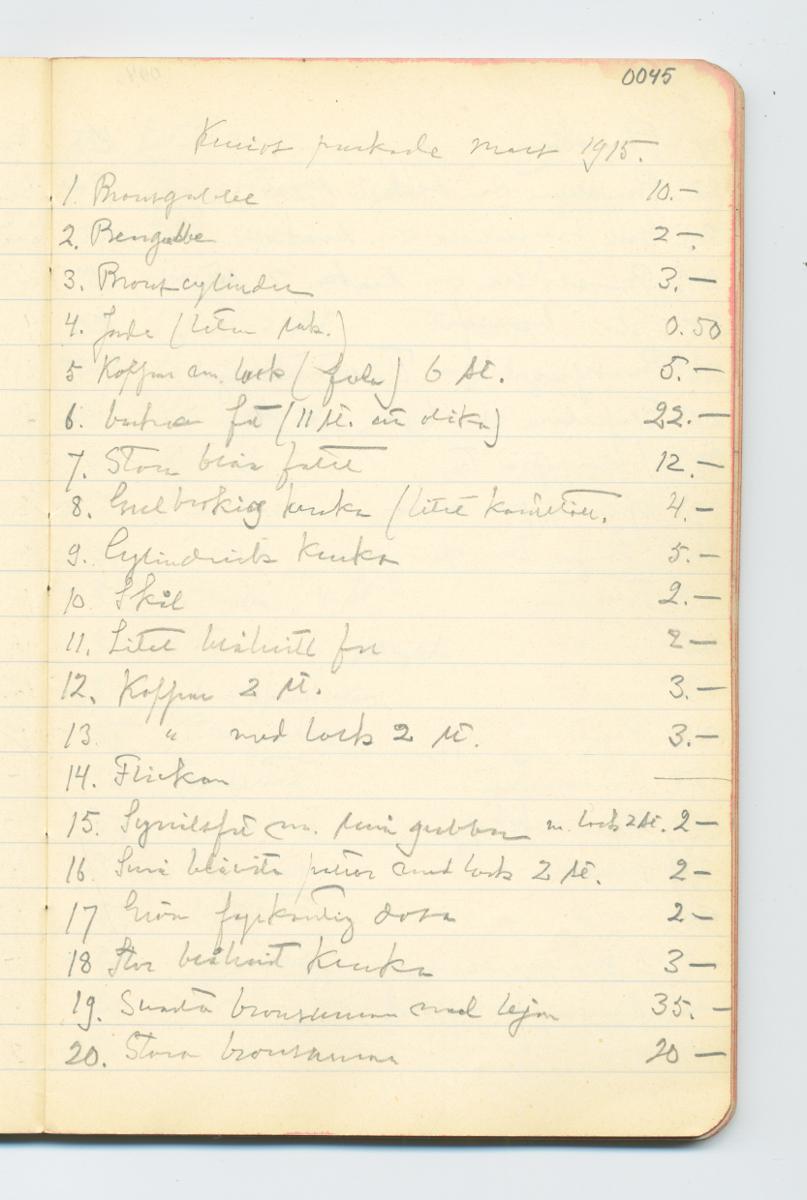 0045
Kurios packade mars 1915.
1. Bronsgubbe 10.-
2. Bengubbe 2-.
3. Bronscylinder 3.-
4. Jade (liten sak.) 0.50
5 Koppar m. lock (fula) 6 st. 5.-
6. fat (11 st. olika) 22.-
7. Stora blåa fatet 12.-
8. kruka (litet 4.-
9. Cylindrisk Kruka 5.-
10. Skål 2.-
11. Litet blåhvitt fat 2-
12. Koppar 2 st. 3.-
13. " med lock 2 st. 3.-
14. Flickan —
15. m. små gubbar m. lock 2 st. 2-
16. Små blåvita med lock 2 st. 2-
17 Grön fyrkantig dosa 2-
18 Stor blåhvit Kruka 3-
19. Svarta bronsurnan med lejon 35.-
20. Stora bronsurnan 20-